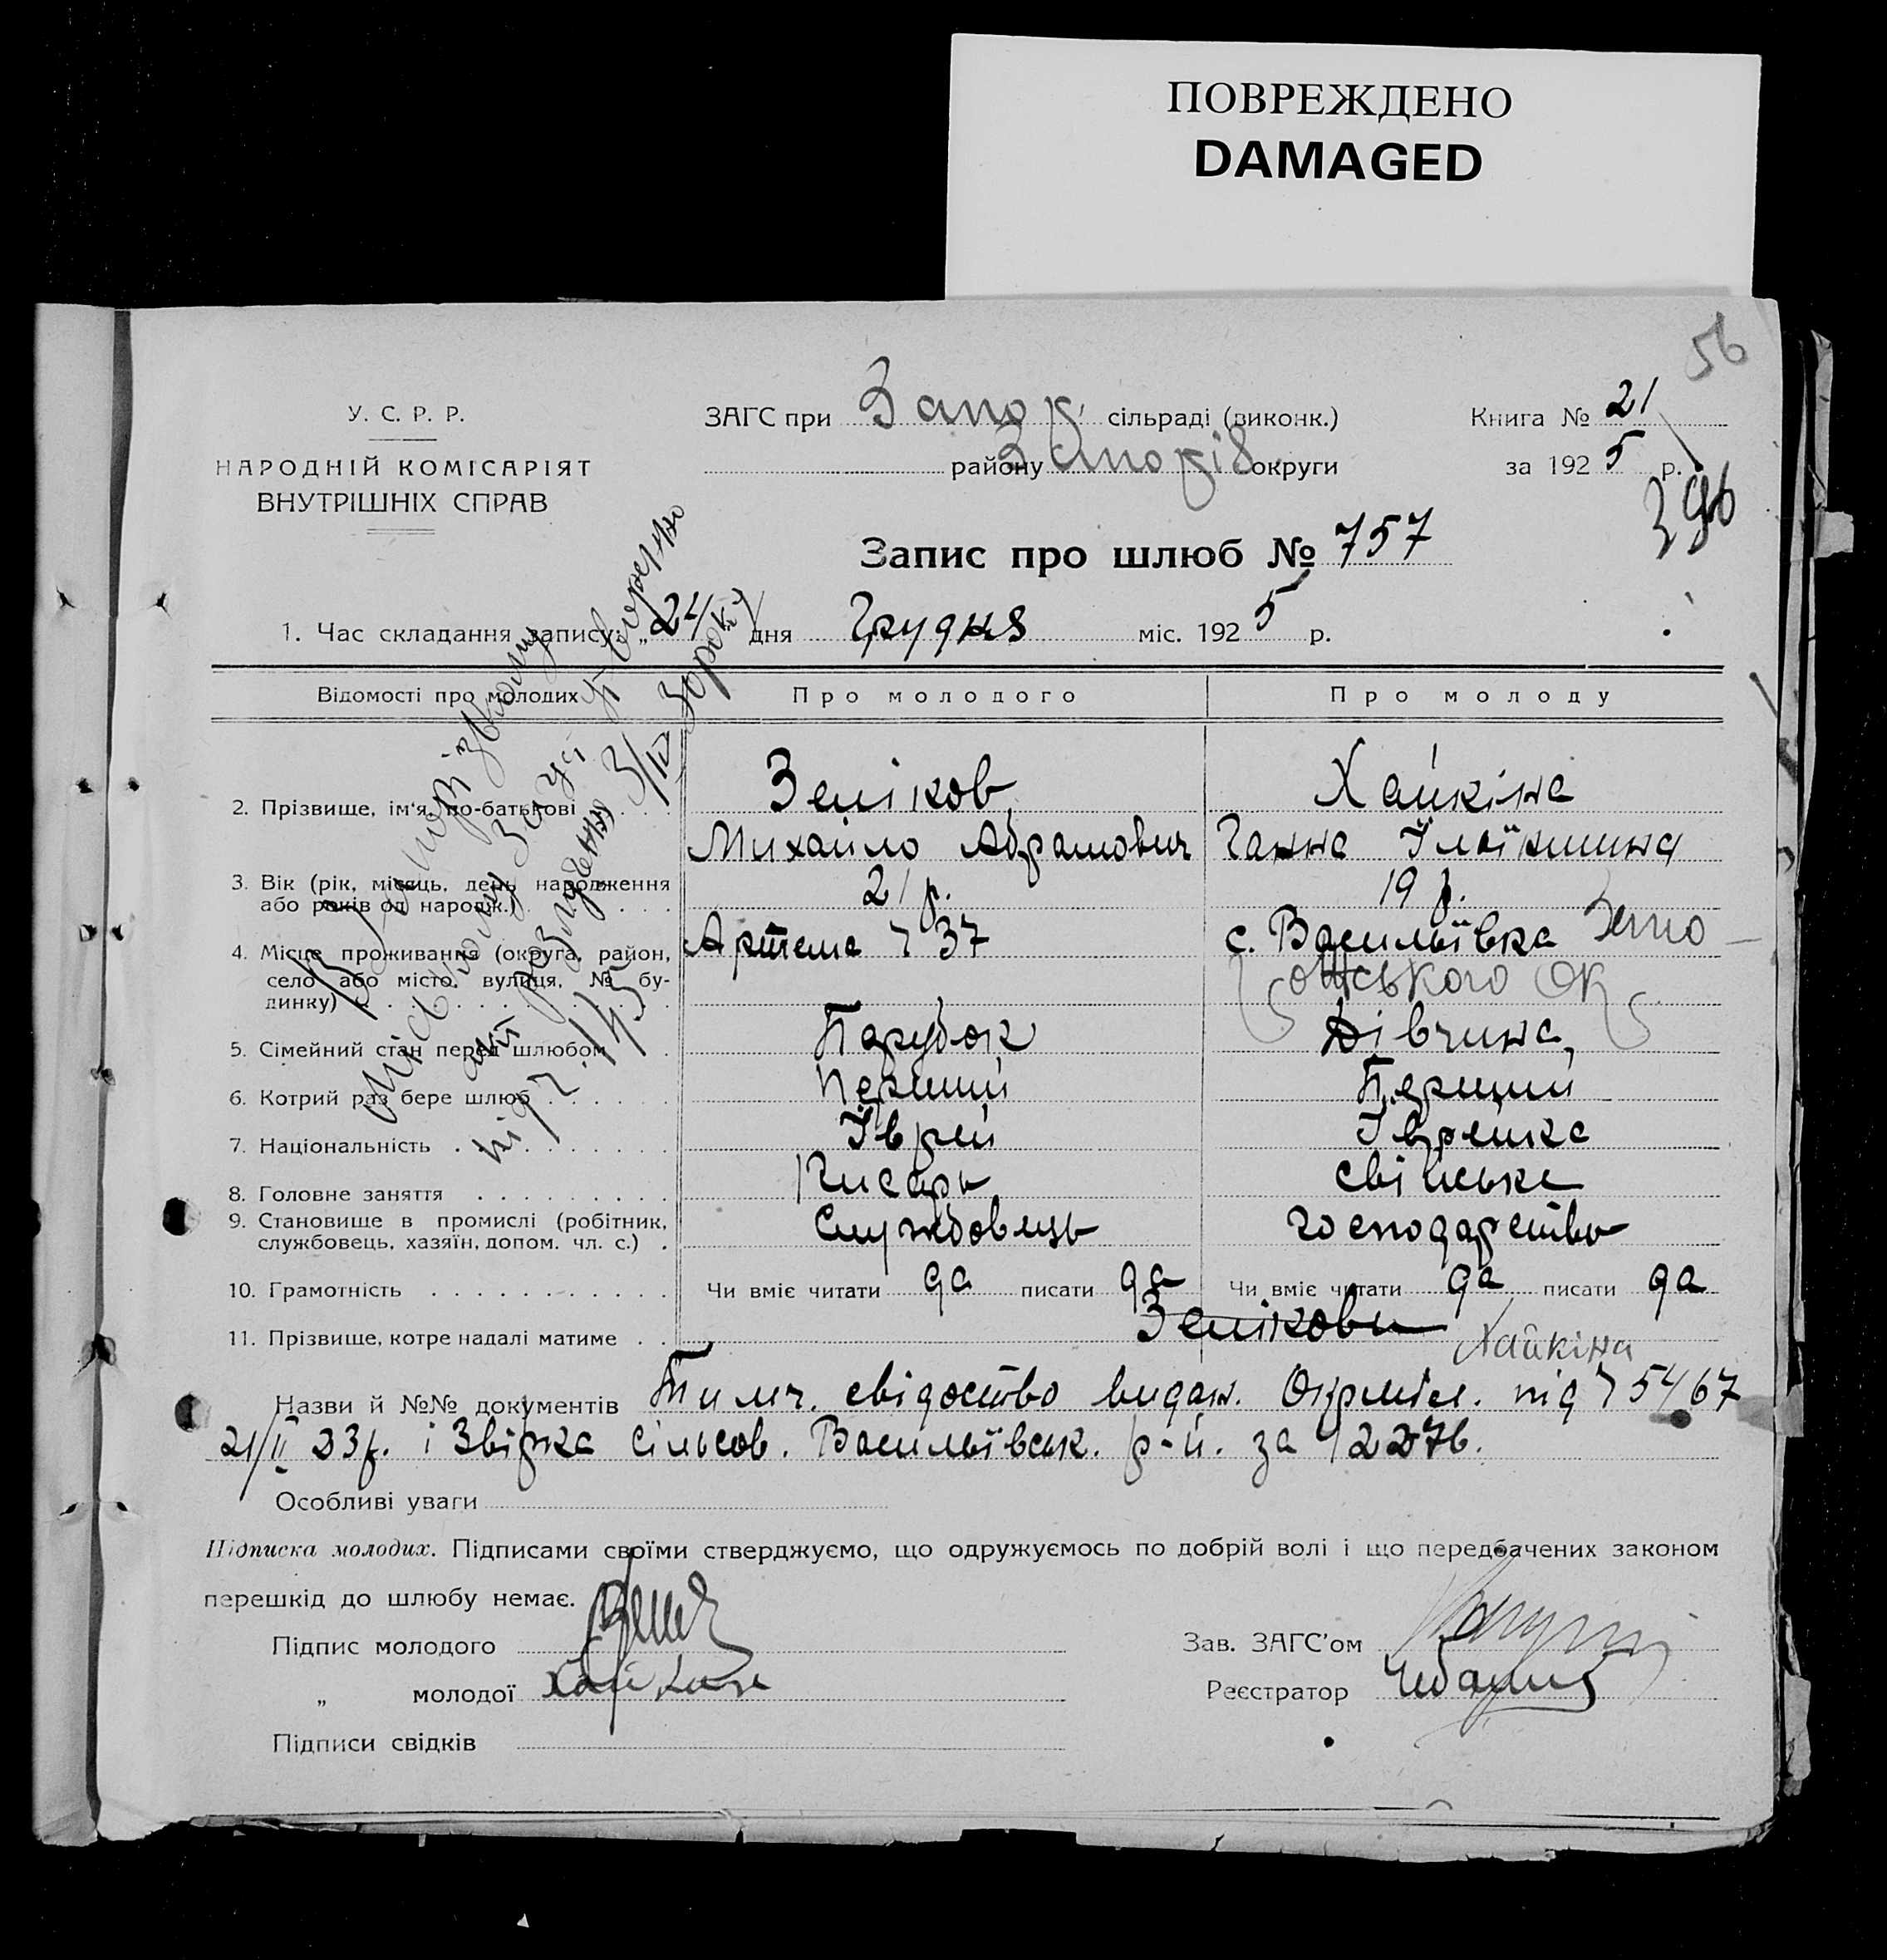 ПОВРЕЖДЕНО
DAMAGED
56
У. С. Р. Р.
НАРОДНІЙ КОМІСАРІЯТ
ВНУТРІШНІХ СПРАВ
ЗАГС при Запор. сільраді (виконк.)
району Запоріз округи
Книга № 21
за 1925 р.
396
Запис про шлюб № 757
1. Час складання запису: „24" дня Грудня міс. 1925 р.
Відомості про молодих
Про молодого
Про молоду
2. Прізвище, ім'я, по-батькові
Зеліков
Михайло Абрамович
Хайкіна
Ганна Ілліїнишна
3. Вік (рік, місяць, день народження
або років од народж.)
21 р.
19 р.
4. Місце проживання (округа, район,
село або місто, вулиця, № бу-
динку)
Артема 37
с. Васильївка Запо-
ського ок
5. Сімейний стан перед шлюбом
Парубок
Дівчина
6. Котрий раз бере шлюб
Перший
Перший
7. Національність
Їврей
Їврейка
8. Головне заняття
Писарь
Свійське
9. Становище в промислі (робітник,
службовець, хазяїн, допом. чл. с.)
Службовець
господарство
10. Грамотність
Чи вміє читати да писати да
Чи вміє читати да писати да
11. Прізвище, котре надалі матиме
Зелікови
Хайкіна
Назви й №№ документів Тимч. свідоцтво видан. Окрміл. під ч 5467
21/II 23р. і Звірка сільсов. Васильївськ. р-й. за ч 2276.
Особливі уваги
Підписка молодих. Підписами своїми стверджуємо, що одружуємось по добрій волі і що передбачених законом
перешкід до шлюбу немає.
Підпис молодого
„ молодої Хайкина
Підписи свідків
Зав. ЗАГС'ом
Реєстратор